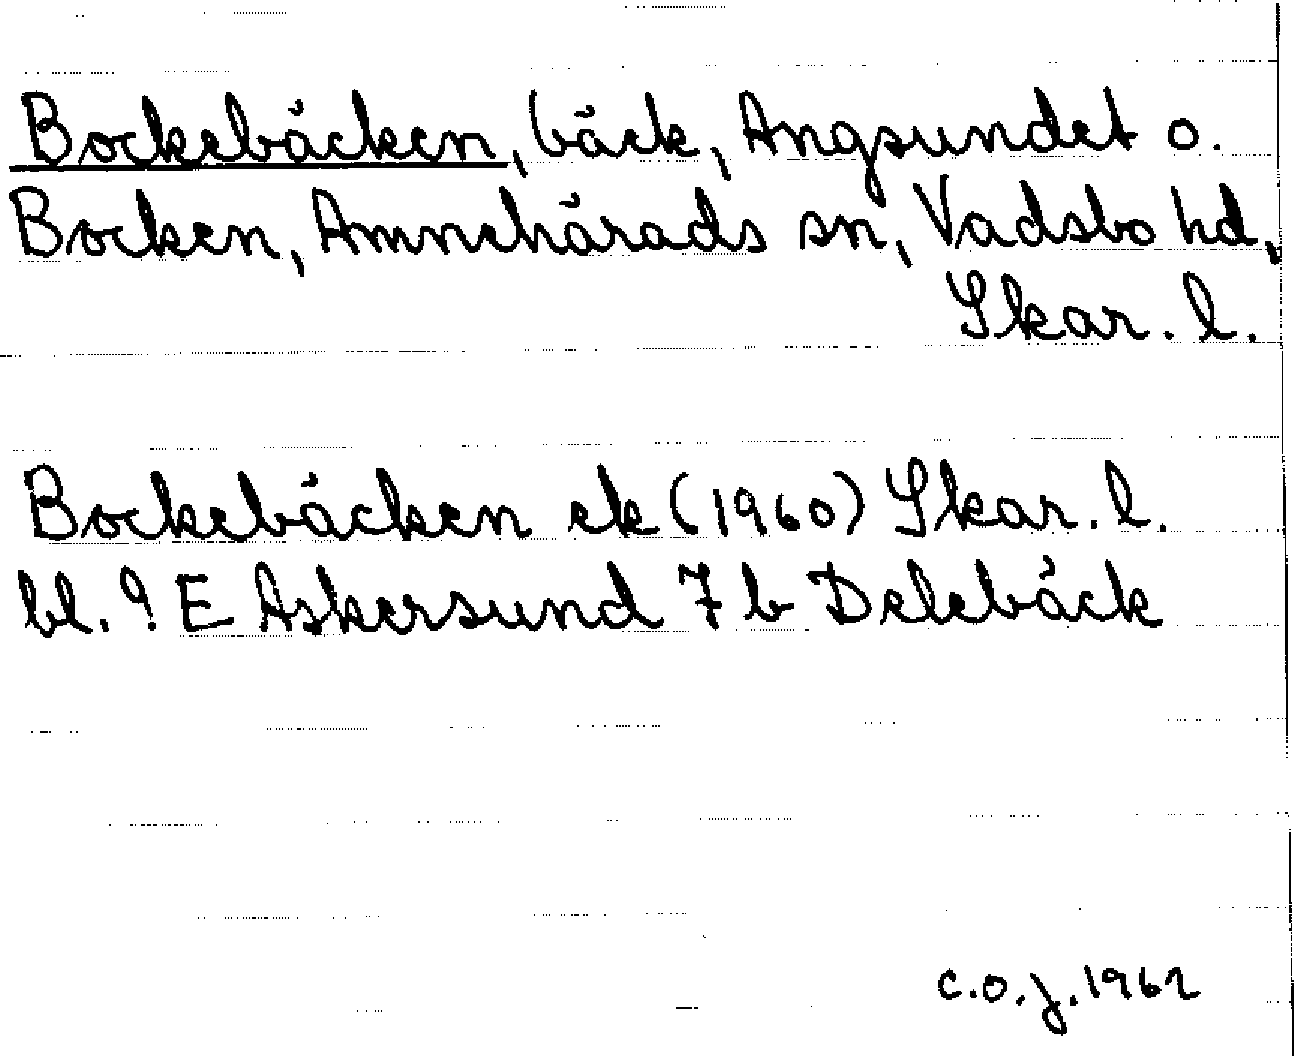 Bockebäcken, bäck, Angsundet o.
Bocken, Amnehärads sn, Vadsbo hd,
Skar. l.
Bockebäcken ek (1960) Skar. l.
bl. 9 E Askersund 7 b Delebäck
C.O.J. 1962